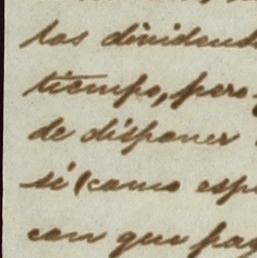 los dividend
tiempo, pero
de disponer
si (como esp
con que pag